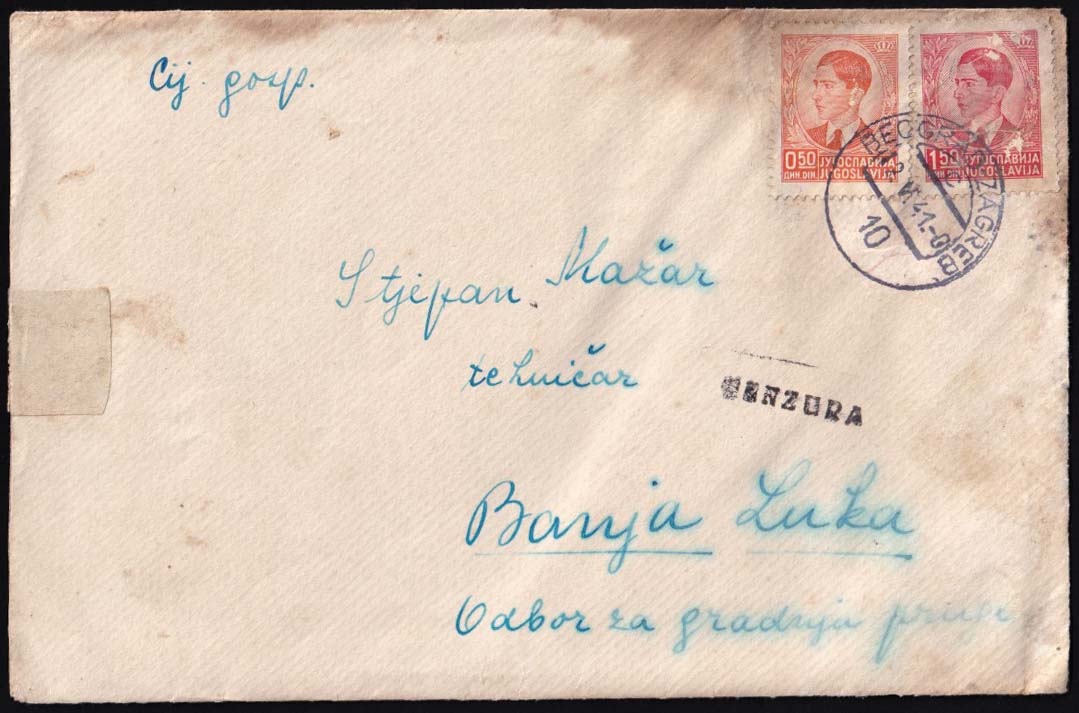 Cij. gosp.
0.50 ЈУГОСЛАВИЈА
ДИН DIN JUGOSLAVIJA
1.50 ЈУГОСЛАВИЈА
ДИН DIN JUGOSLAVIJA
BEOGRAD ZAGREB
VI.41.-0
10
Stjepan Mažar
tehničar
CENZURA
Banja Luka
Odbor za gradnju